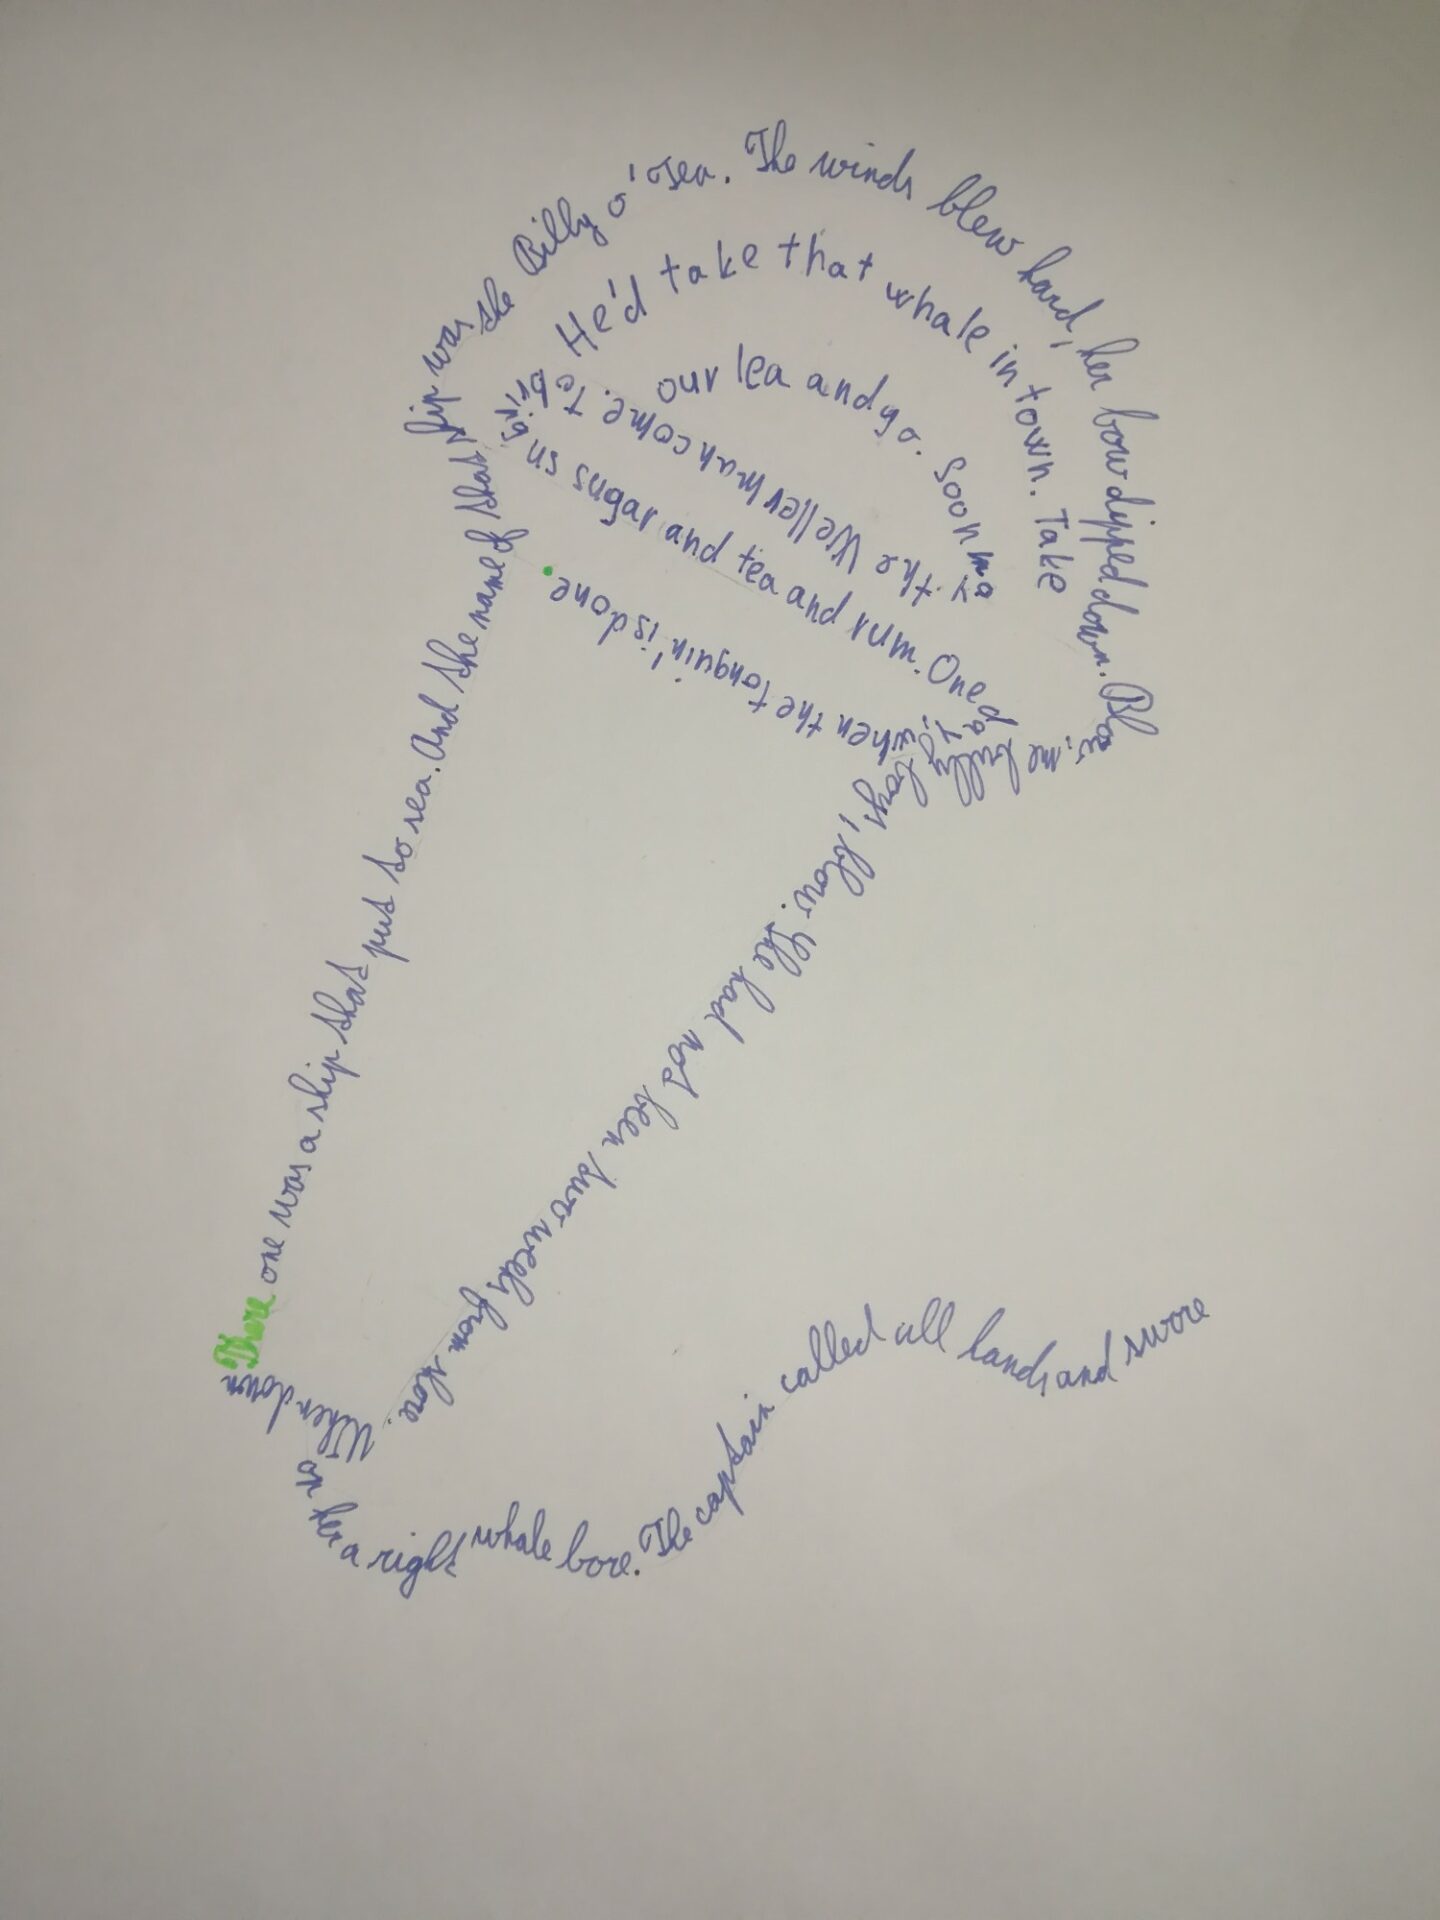 There one was a ship that put to sea. And the name of that ship was the Billy o' Tea. The winds blew hard, her bow dipped down. Blow, me bully boys, blow. She had not been two weeks from shore. When down on her a right whale bore. The captain called all hands and swore
He'd take that whale in town. Take
our lea and go. Soon may the Wellerman come. To bring us sugar and tea and rum. One day, when the tonguin' is done.